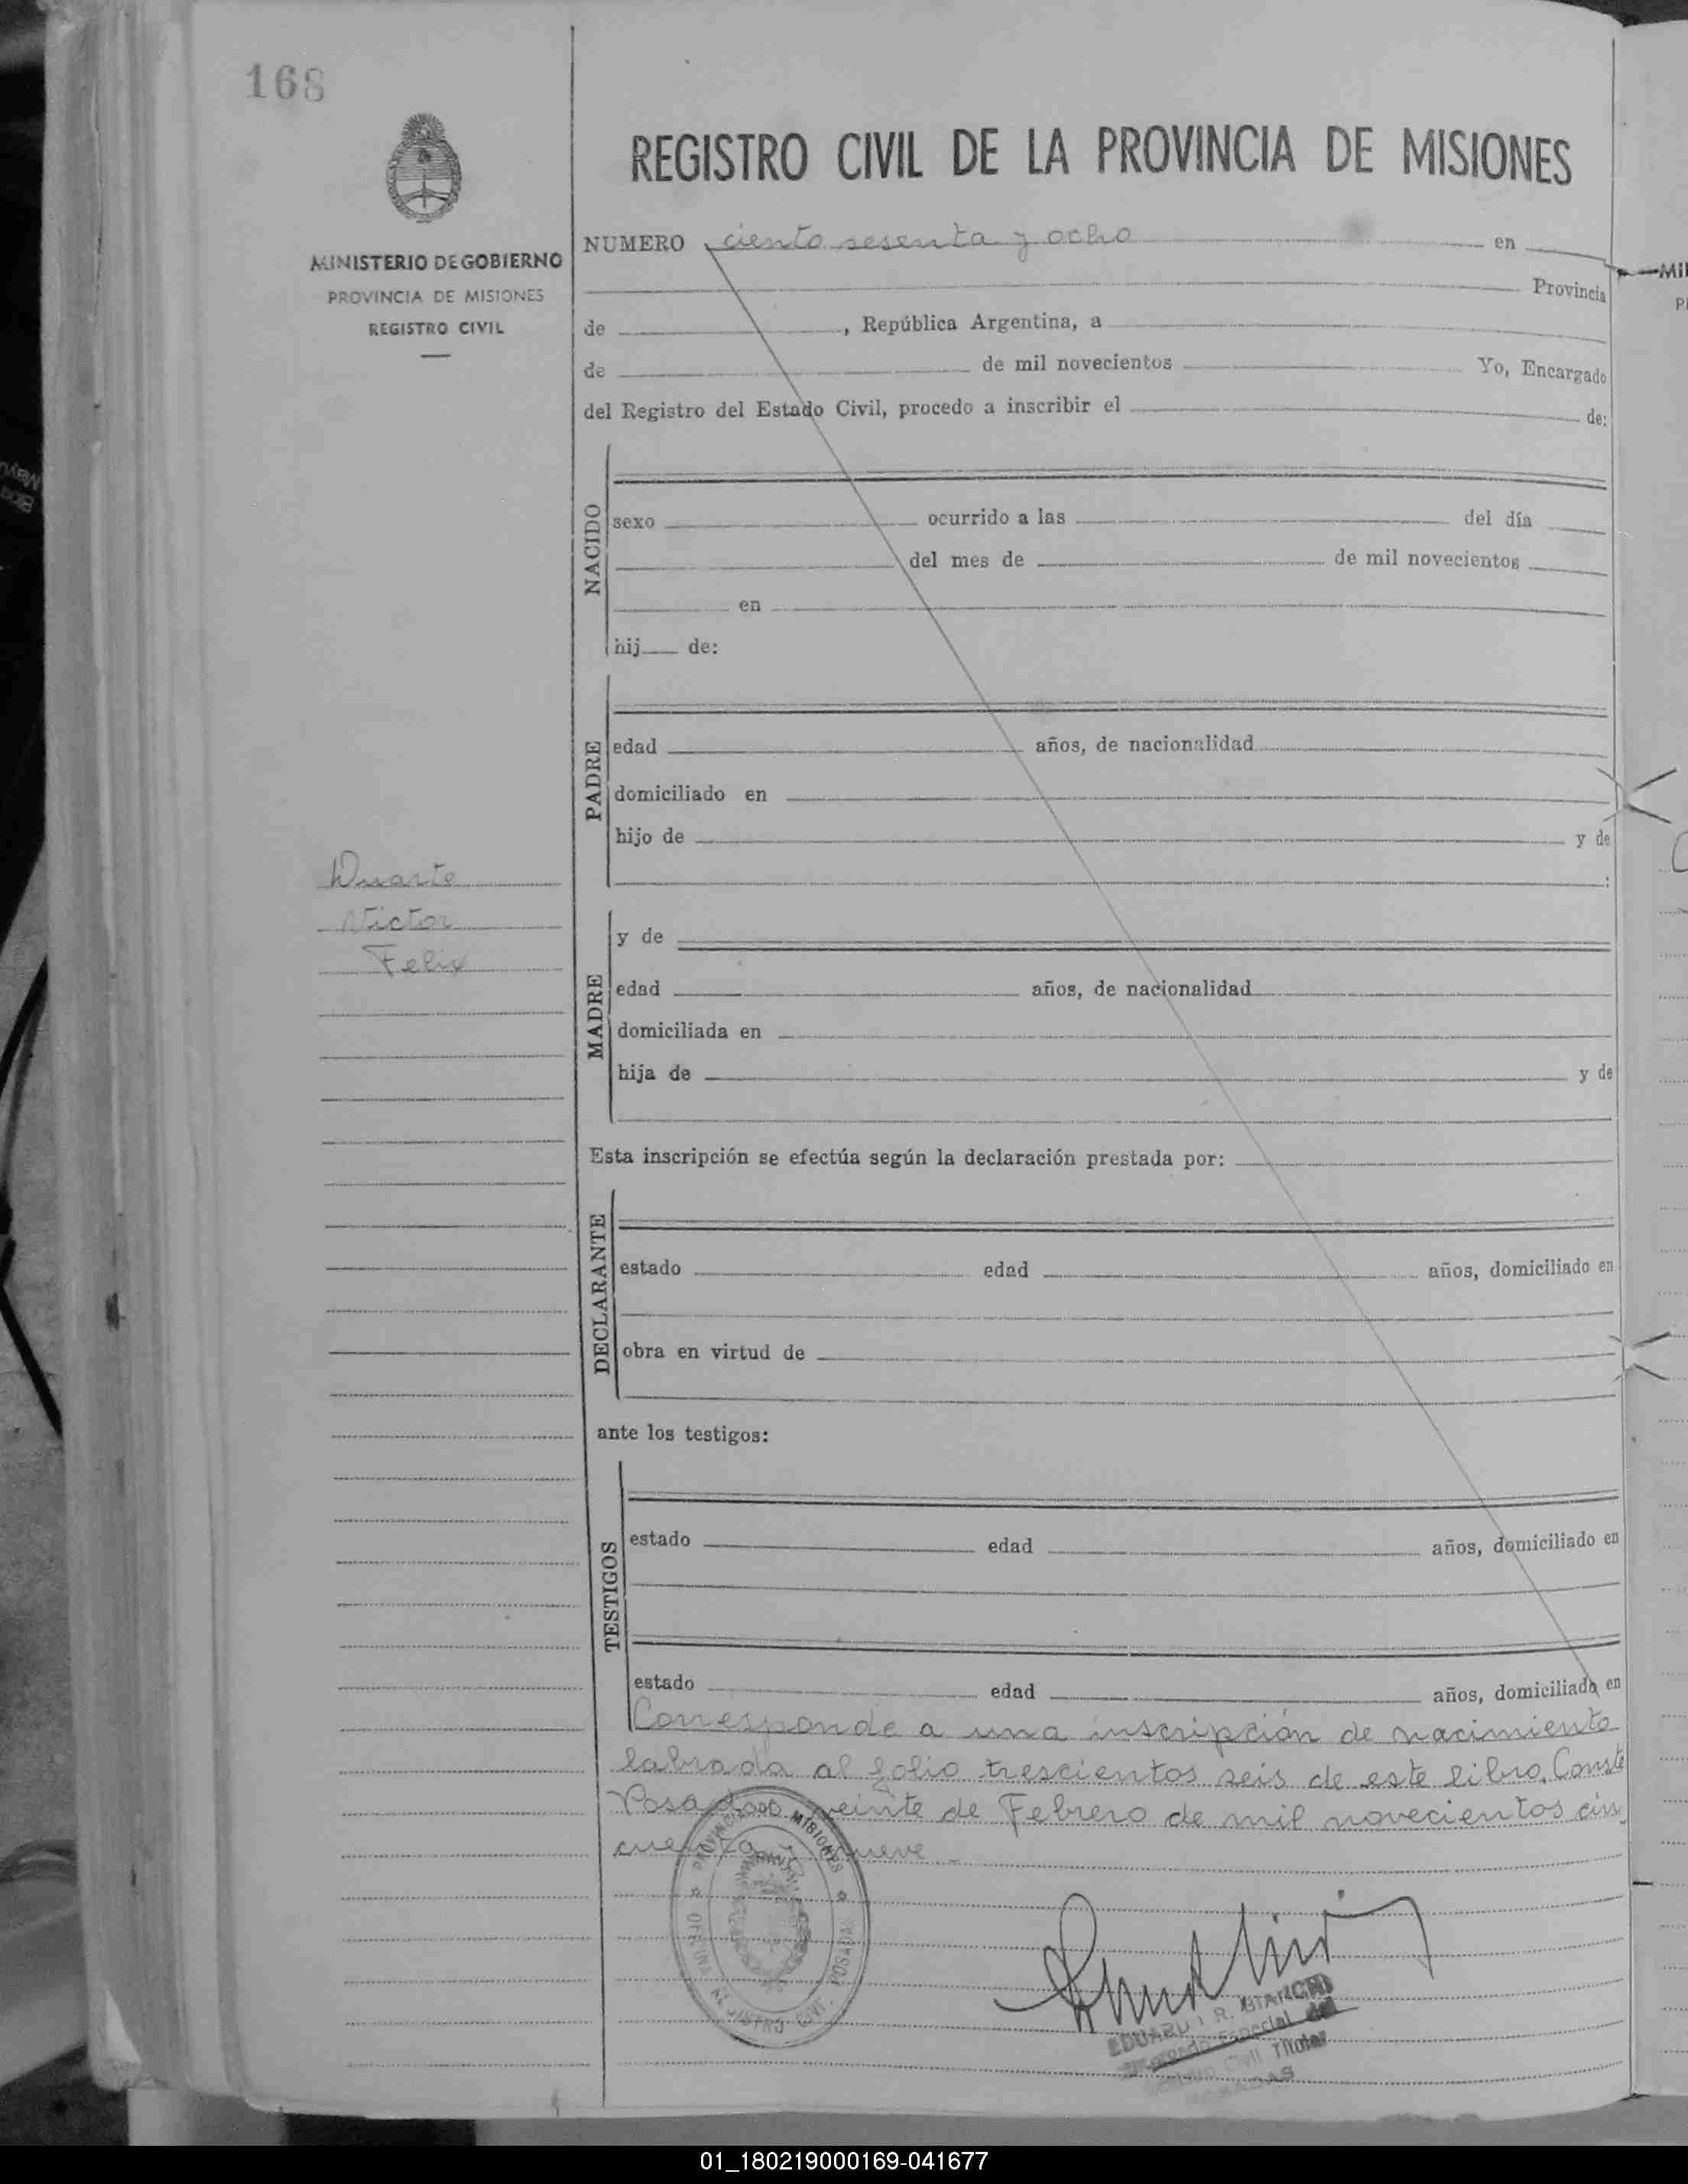 168
MINISTERIO DE GOBIERNO
PROVINCIA DE MISIONES
REGISTRO CIVIL
REGISTRO CIVIL DE LA PROVINCIA DE MISIONES
NUMERO ciento sesenta y ocho en
Provincia
de , República Argentina, a
de de mil novecientos Yo, Encargado
del Registro del Estado Civil, procedo a inscribir el de:
NACIDO
sexo ocurrido a las del día
del mes de de mil novecientos
en
hij de:
PADRE
edad años, de nacionalidad
domiciliado en
hijo de y de
:
Duarte
Victor
Felix
MADRE
y de
edad años, de nacionalidad
domiciliada en
hija de y de
Esta inscripción se efectúa según la declaración prestada por:
DECLARANTE
estado edad años, domiciliado en
obra en virtud de
ante los testigos:
TESTIGOS
estado edad años, domiciliado en
estado edad años, domiciliado en
Corresponde a una inscripción de nacimiento
labrada al folio trescientos seis de este libro. Conste
Posadas veinte de Febrero de mil novecientos cin
cuenta y nueve
PROVINCIA MISIONES
OFICINA REGISTRO CIVIL POSADAS
EDUARDO R. BIANCHI
Encargado Especial del
Registro Civil Titular
POSADAS
01_180219000169-041677